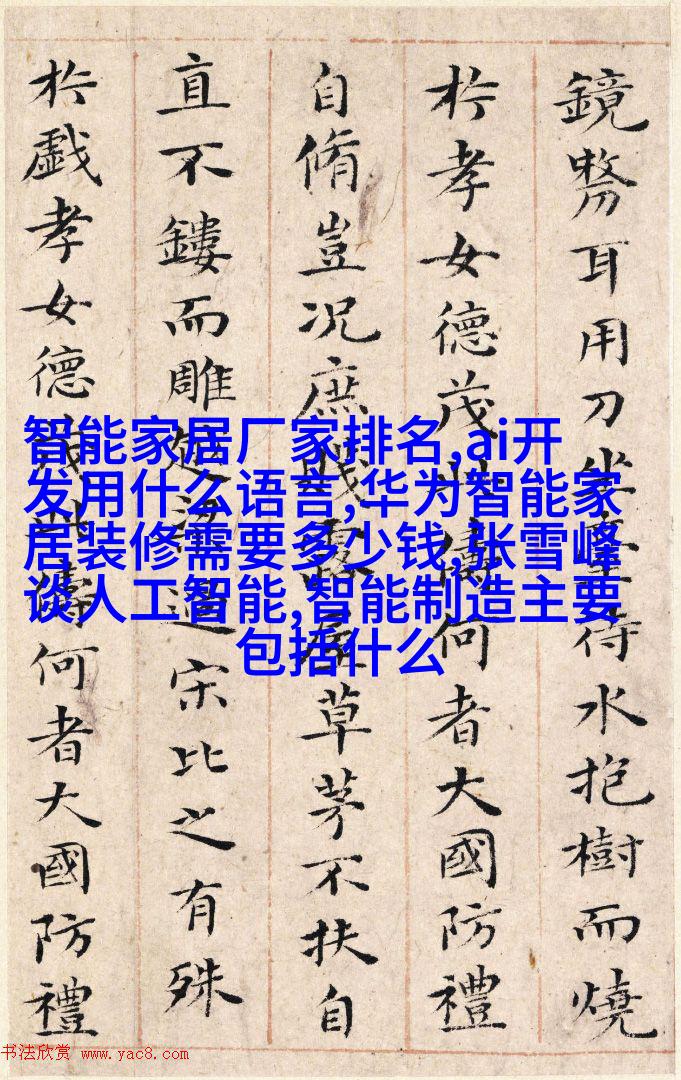 鏡剺耳用刀坐臺待水抱樹而燒
扵孝女德茂此儔何者大國防禮
自脩豈況庶賤露屋草茅不扶自
直不鏤而雕越梁過宋比之有殊
扵戲孝女德茂此儔何者大國防禮
智能家居厂家排名,ai开
发用什么语言,华为智能家
居装修需要多少钱,张雪峰
谈人工智能,智能制造主要
包括什么
书法欣赏 www.yac8.com